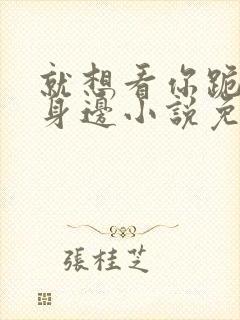 就想看你跪
身邊小説免
張桂芝